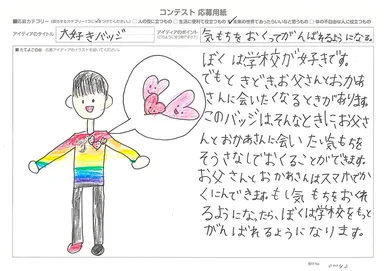 コンテスト 応募用紙
■応募カテゴリー
人の役に立つもの
生活に便利で役立つもの
未来の世界であったらいいなと思うもの
体の不自由な人に役立つもの
アイディアのタイトル
大好きバッジ
アイディアのポイント
気もちをおくってがんばれるようになる。
ぼくは学校が好きです。
でもときどき、お父さんとおかあ
さんに会いたくなるときがあります。
このバッジは、そんなときに、お父さ
んとおかあさんに会いたい気もちを
そうさなしでおくることができます。
お父さんとおかあさんはスマホでか
くにんできます。もし気もちをおくれ
るようになったら、ぼくは学校をもっと
がんばれるようになります。